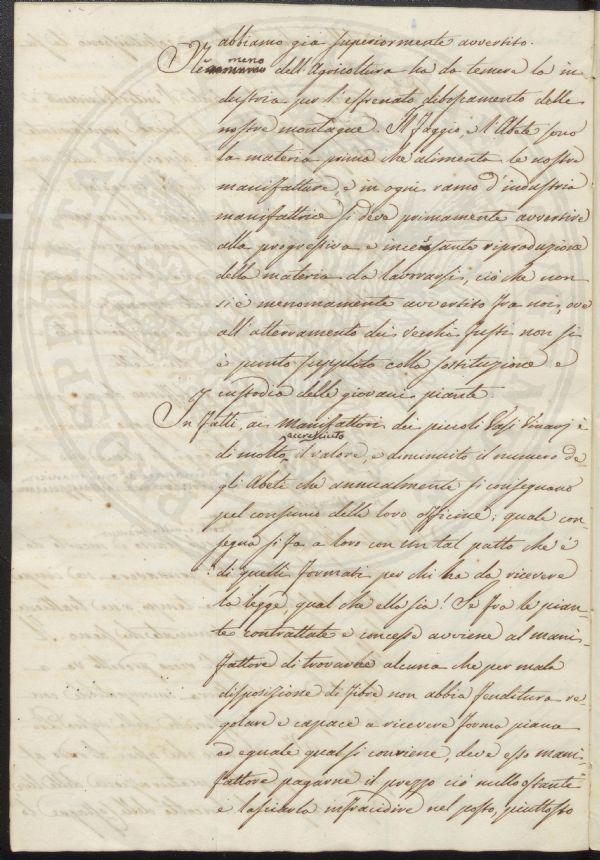 abbiamo già superiormente avvertito.
meno
Nè dell'Agricoltura ha da temere la in
dustria per l'effrenato diboscamento delle
nostre montagne. Il Faggio, e l'Abete sono
la materia prima che alimenta le nostre
manifatture, e in ogni ramo d'industria
manifattrice si deve primamente avvertire
alla progressiva e incessante riproduzione
della materia da lavorarsi, ciò che non
si è menomamente avvertito fra noi, ove
all'atterramento dei vecchi fusti non si
è punto supplito colla sostituzione e
custodia delle giovani piante.
In fatti, ai Manifattori dei piccoli Vasi è
accresciuto
di molto il valore, e diminuito il numero de
gli Abeti che annualmente si consegnano
pel consumo delle loro officine; quale con
segna si fa a loro con un tal patto che è
di quelli formati per chi ha da ricevere
la legge, qual che ella sia! Se fra le pian-
te contrattate e concesse avviene al mani-
fattore di trovarne alcuna che per mala
disposizione di fibre non abbia fenditura re-
golare e capace a ricevere forma piana
ed eguale qual si conviene, deve esso mani
fattore pagarne il prezzo ciò nullostante
e lasciarla infracidire nel posto, piuttosto
PROSPERITÀ